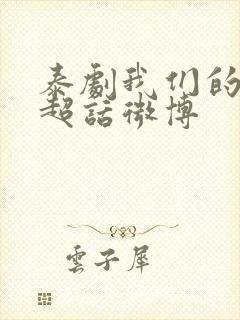 泰劇我们的
超話微博
雲子犀